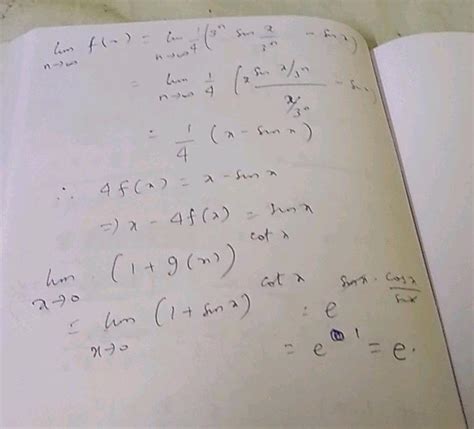 lim n→∞ f(x) = lim n→∞ 1/4 (3^n sin x/3^n - sin x)
= lim n→∞ 1/4 (x sin x/3^n / x/3^n - sin x)
= 1/4 (x - sin x)
∴ 4f(x) = x - sin x
⇒ x - 4f(x) = sin x
lim x→0 (1 + g(x))^cot x
= lim x→0 (1 + sin x)^cot x = e^sin x · cos x/sin x
= e^1 = e.